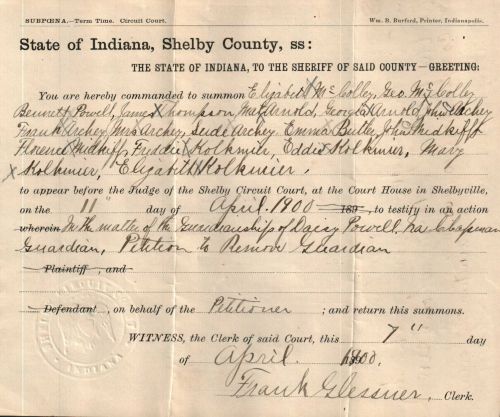 SUBPŒNA.—Term Time. Circuit Court. Wm. B. Burford, Printer, Indianapolis.
State of Indiana, Shelby County, ss:
THE STATE OF INDIANA, TO THE SHERIFF OF SAID COUNTY—GREETING:
You are hereby commanded to summon Elizabeth McColley, Geo. McColley
Bennett Powell, James Thompson, Mat Arnold, George Arnold, John Archey
Frank Archey, Mrs Archey, Archey, Emma Butler, John Midkiff
Florence Midkiff, Freddie Kolkmier, Eddie Kolkmier, Mary
Kolkmier, Elizabeth Kolkmier,
to appear before the Judge of the Shelby Circuit Court, at the Court House in Shelbyville,
on the 11" day of April, 1900 189 , to testify in an action
wherein In the matter of the Guardianship of Daisy Powell. Ira Chapman
Guardian, Petition to Remove Guardian
Plaintiff, and
Defendant, on behalf of the Petitioner ; and return this summons.
WITNESS, the Clerk of said Court, this 7" day
of April. 1900.
Frank Glessner, Clerk.
INDIANA